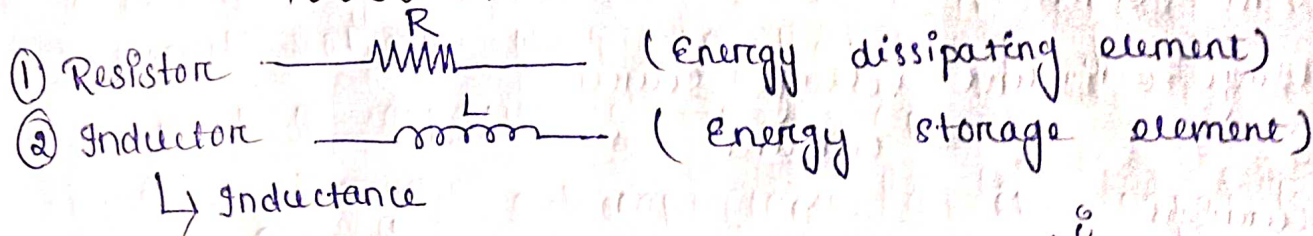 ① Resistor R (Energy dissipating element)
② Inductor L (Energy storage element)
↳ Inductance
i